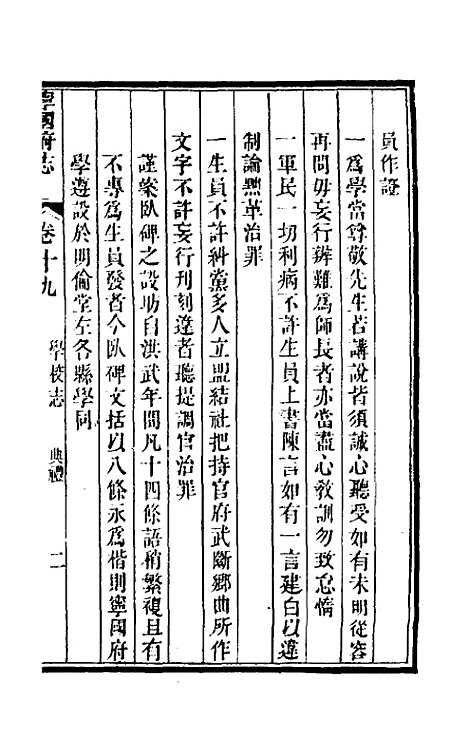 員作證
一爲學當尊敬先生若講說皆須誠心聽受如有未明從容
再問毋妄行辨難爲師長者亦當盡心敎訓勿致怠惰
一軍民一切利病不許生員上書陳言如有一言建白以違
制論黜革治罪
一生員不許糾黨多人立盟結社把持官府武斷鄉曲所作
文字不許妄行刊刻違者聽提調官治罪
謹案臥碑之設昉自洪武年間凡十四條語稍繁複且有
不專爲生員發者今臥碑文括以八條永爲楷則寧國府
學遵設於明倫堂左各縣學同
寧國府志
卷十九
學校志
典禮
二